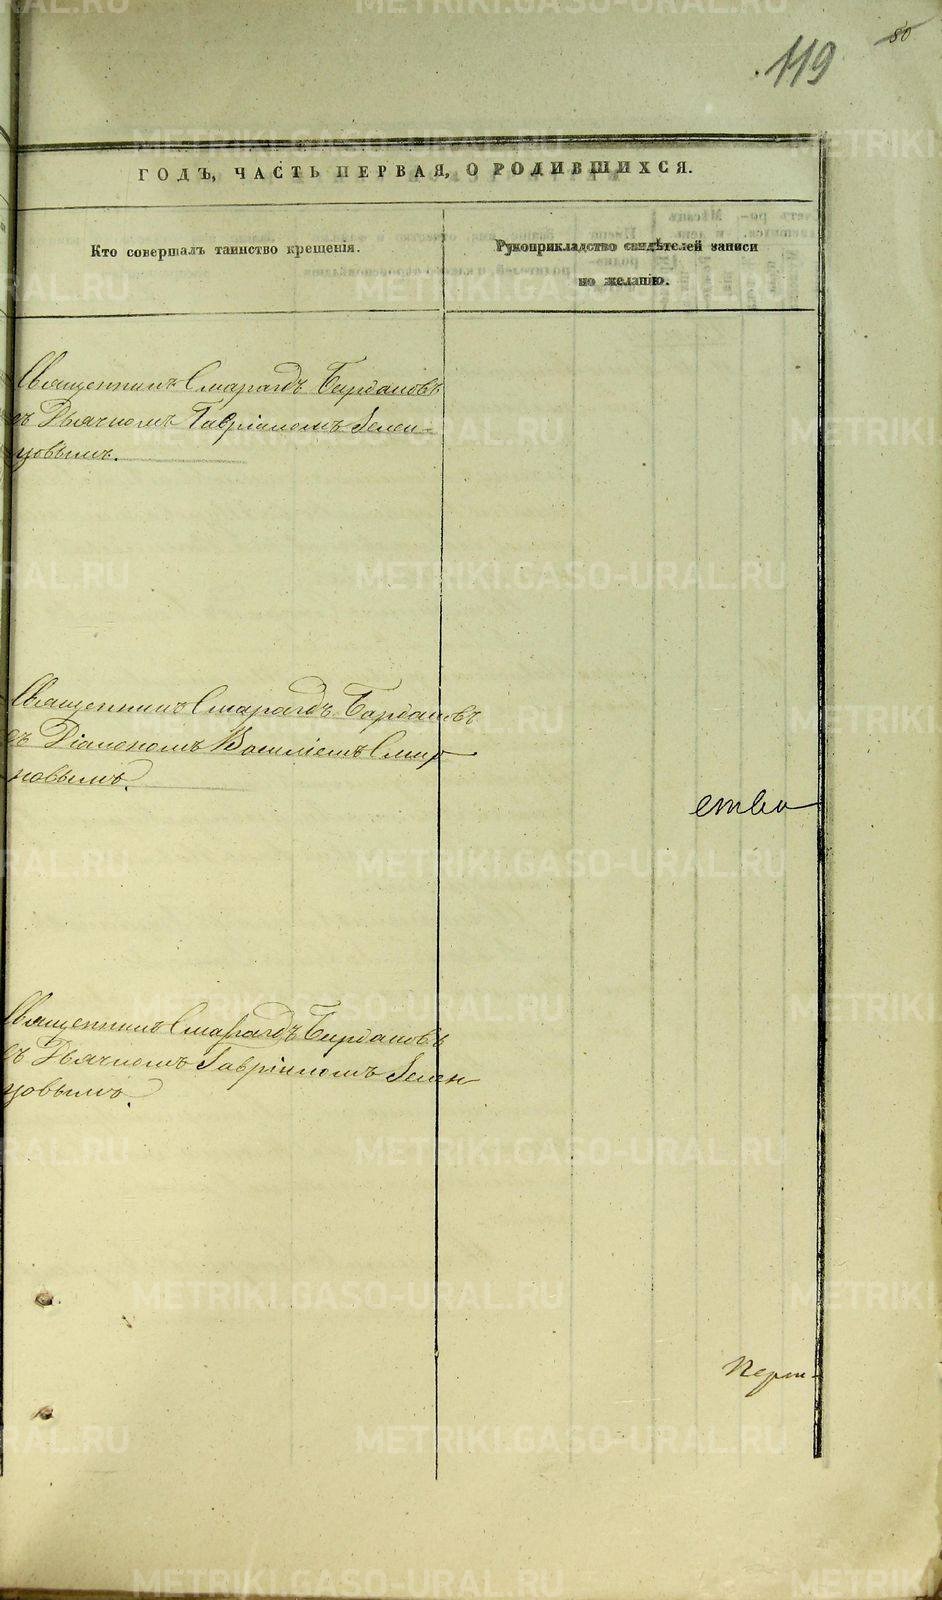 119
80
ГОДЪ, ЧАСТЬ ПЕРВАЯ, О РОДИВШИХСЯ.
Кто совершалъ таинство крещенія.
Рукоприкладство свидѣтелей записи
по желанію.
Священникъ Смарагдъ Бирдановъ
съ Дьячкомъ Гавріиломъ Зелен-
цовымъ.
Священникъ Смарагдъ Бардановъ
съ Діакономъ Василіемъ Смир
новымъ.
ства
Священникъ Смарагдъ Бирдановъ
съ Дьячкомъ Гавріиломъ Зелен
цовымъ.
Перм-
METRIKI.GASO-URAL.RU